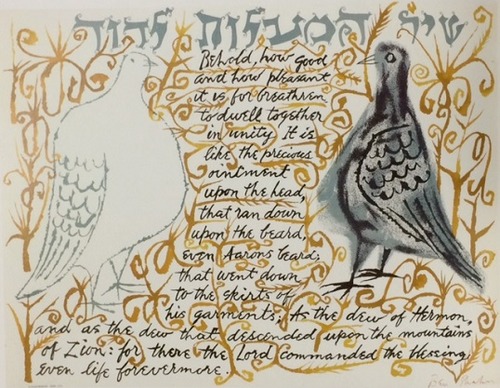 שיר המעלות לדוד
Behold, how good
and how pleasant
it is for breathren
to dwell together
in unity It is
like the precious
ointment
upon the head,
that ran down
upon the beard,
even Aarons beard;
that went down
to the skirts of
his garments; As the dew of Hermon,
and as the dew that descended upon the mountains
of Zion: for there the Lord commanded the blessing,
even life forevermore.